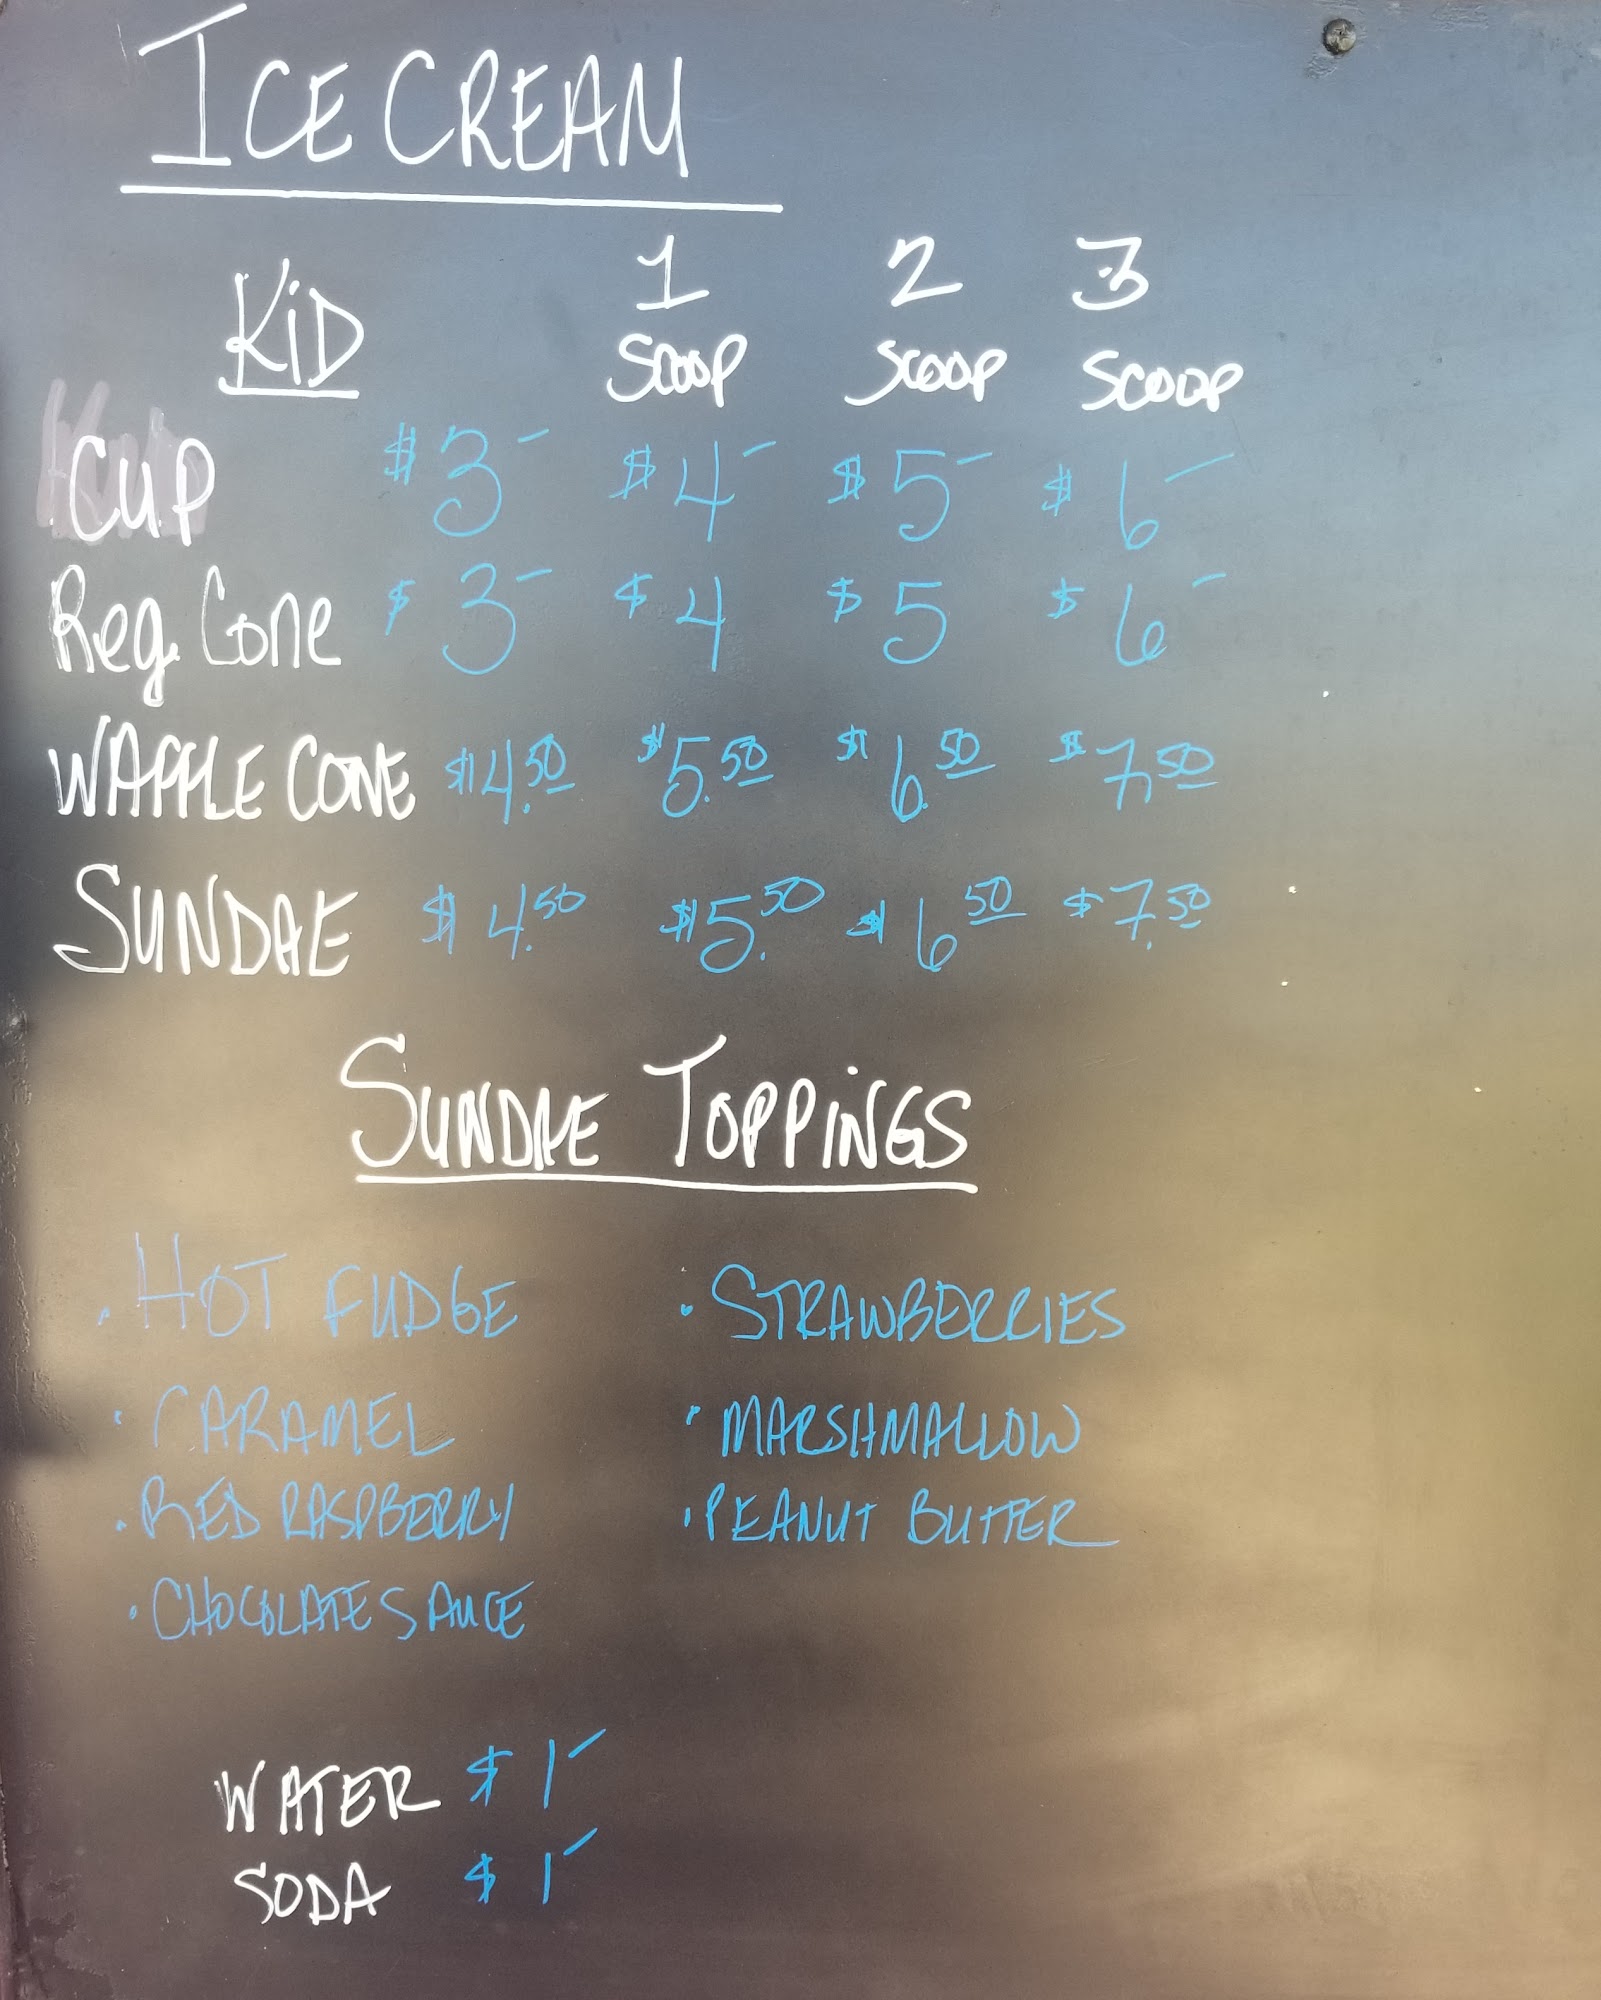 ICE CREAM
KiD 1 SCOOP 2 SCOOP 3 SCOOP
CUP $3- $4- $5- $6-
Reg. Cone $3- $4 $5 $6-
WAFFLE CONE $4.50 $5.50 $6.50 $7.50
SUNDAE $4.50 $5.50 $6.50 $7.50
SUNDAE TOPPiNGS
· HOT FUDGE · STRAWBERRIES
· CARAMEL · MARSHMALLOW
· RED RASPBERRY · PEANUT BUTTER
· CHOCOLATE SAUCE
WATER $1-
SODA $1-